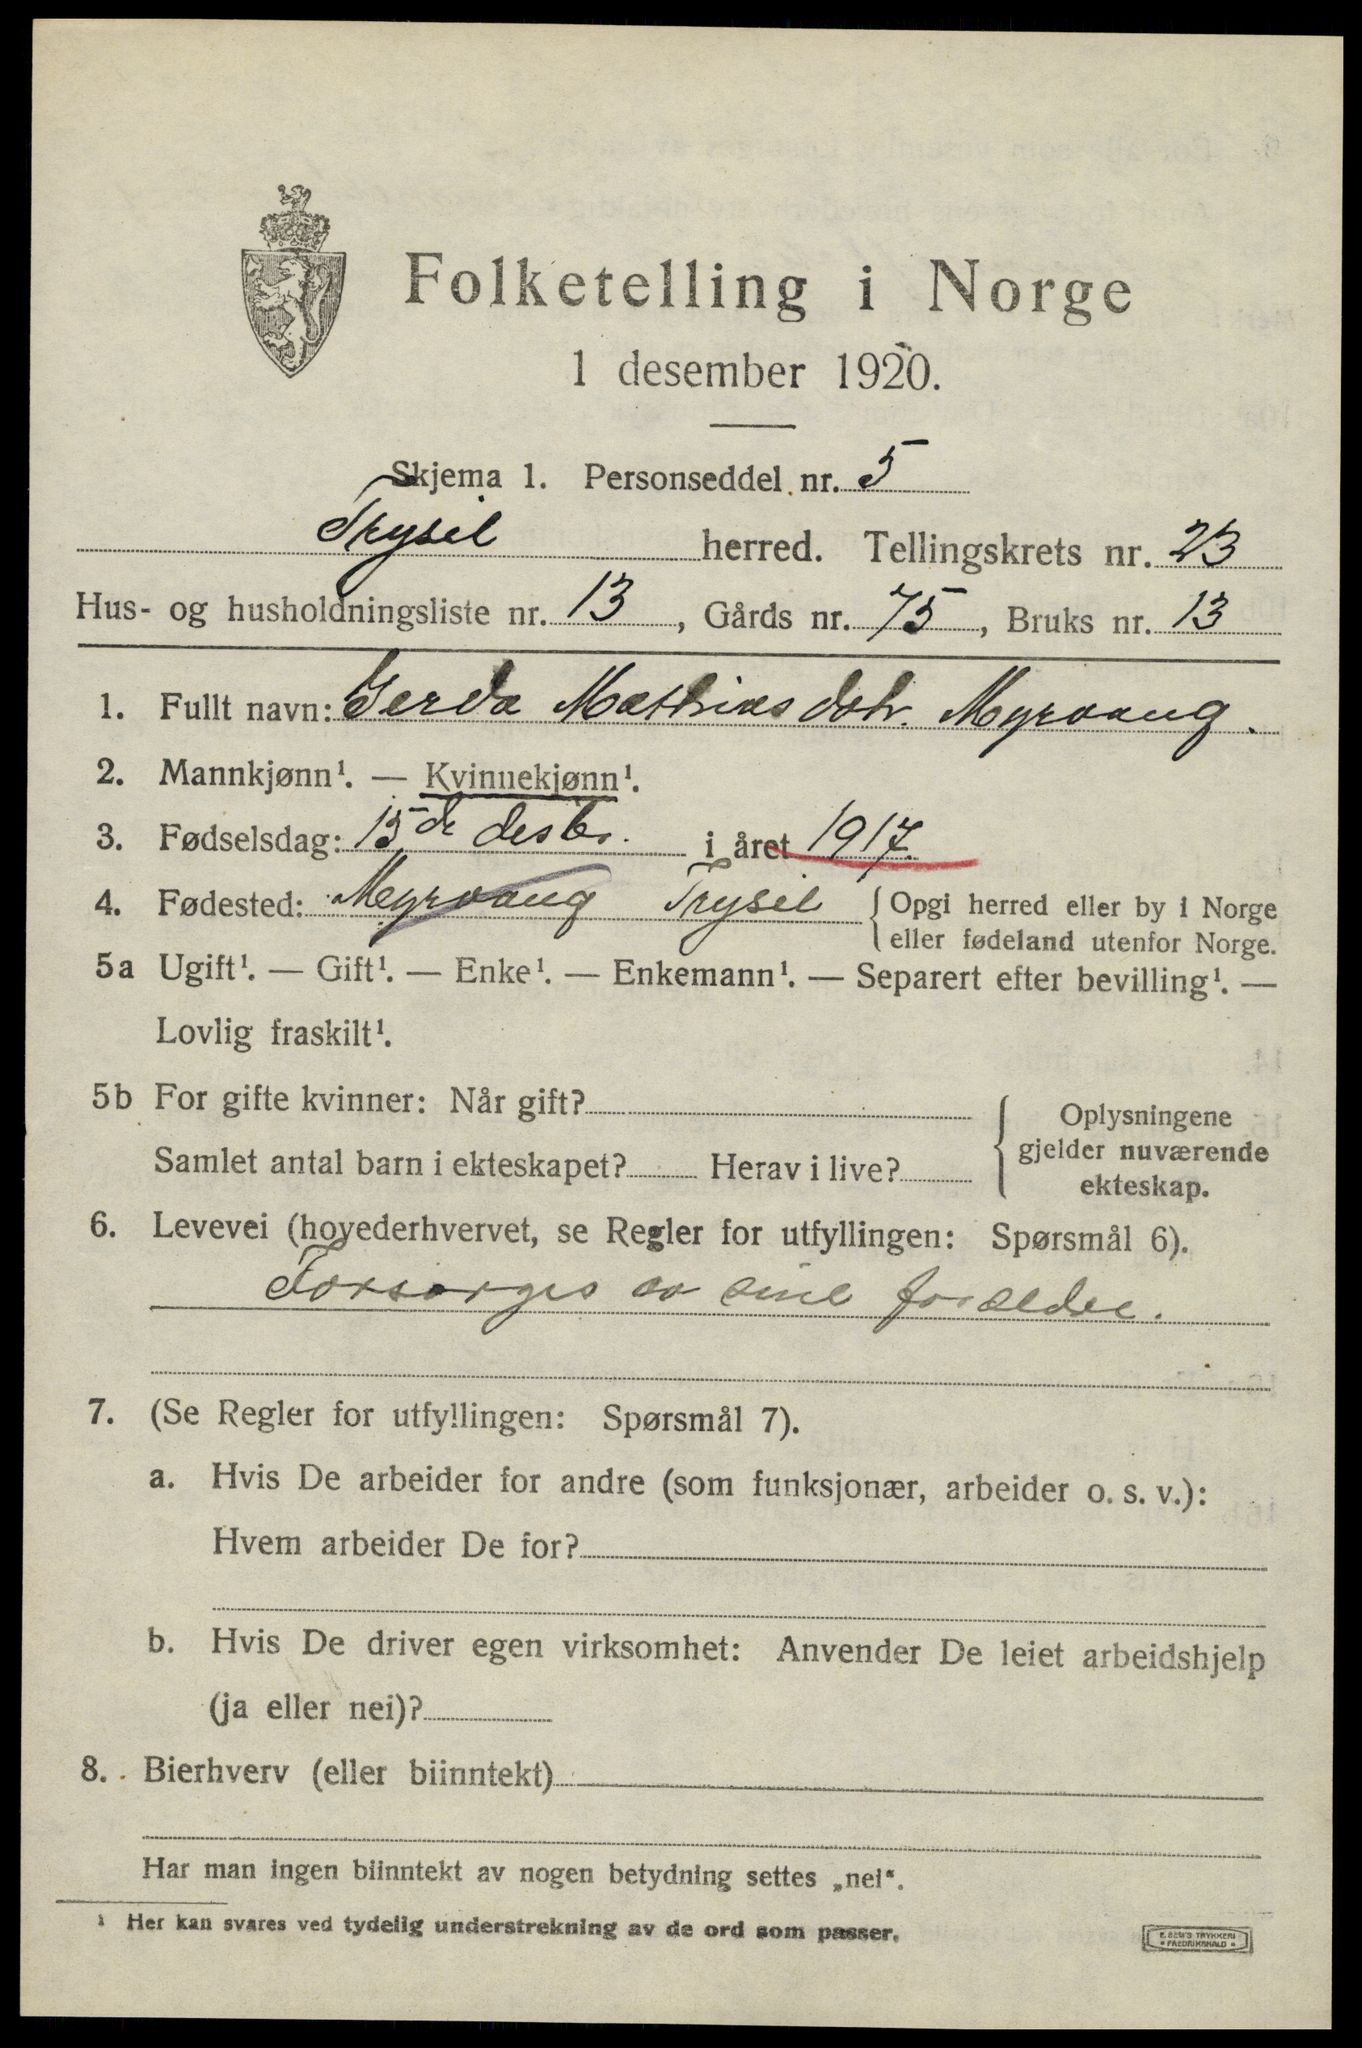 Folketelling i Norge
1 desember 1920.
Skjema 1. Personseddel nr. 5
Trysil herred. Tellingskrets nr. 23
Hus- og husholdningsliste nr. 13, Gårds nr. 75, Bruks nr. 13
1. Fullt navn: Gerda Mathiasdotr. Myrvang.
2. Mannkjønn¹. — Kvinnekjønn¹.
3. Fødselsdag: 15de desbr. i året 1917.
4. Fødested: Myrvang Trysil { Opgi herred eller by i Norge
eller fødeland utenfor Norge.
5a Ugift¹. — Gift¹. — Enke¹. — Enkemann¹. — Separert efter bevilling¹. —
Lovlig fraskilt¹.
5b For gifte kvinner: Når gift?
Samlet antal barn i ekteskapet? Herav i live?
Oplysningene
gjelder nuværende
ekteskap.
6. Levevei (hovederhvervet, se Regler for utfyllingen: Spørsmål 6).
Forsørges av sine forældre.
7. (Se Regler for utfyllingen: Spørsmål 7).
a. Hvis De arbeider for andre (som funksjonær, arbeider o. s. v.):
Hvem arbeider De for?
b. Hvis De driver egen virksomhet: Anvender De leiet arbeidshjelp
(ja eller nei)?
8. Bierhverv (eller biinntekt)
Har man ingen biinntekt av nogen betydning settes „nei“.
¹ Her kan svares ved tydelig understrekning av de ord som passer.
E. SEM'S TRYKKERI
FREDRIKSHALD